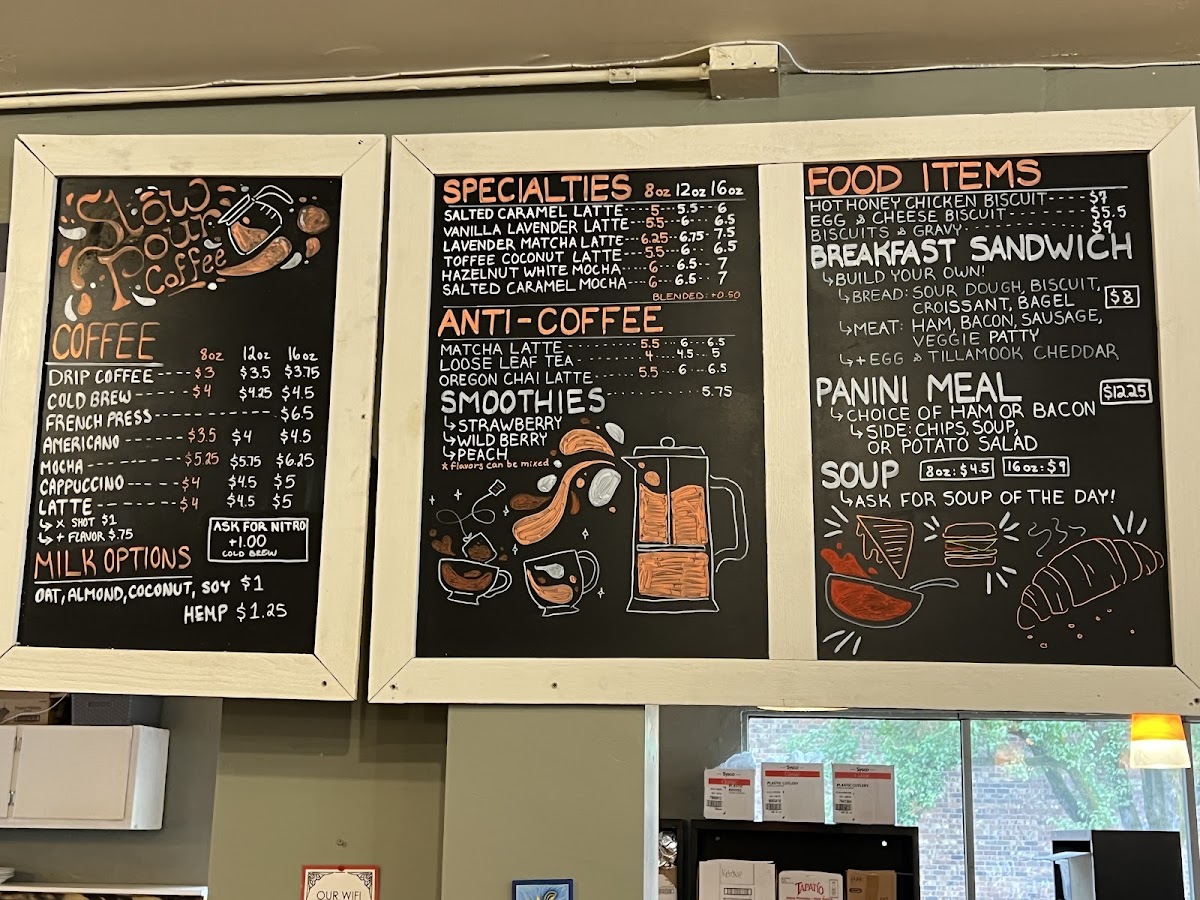 Slow
Pour
Coffee
COFFEE
8oz 12oz 16oz
DRIP COFFEE ---- $3 $3.5 $3.75
COLD BREW ------ $4 $4.25 $4.5
FRENCH PRESS ------------ $6.5
AMERICANO ------ $3.5 $4 $4.5
MOCHA ---------- $5.25 $5.75 $6.25
CAPPUCCINO ----- $4 $4.5 $5
LATTE ---------- $4 $4.5 $5
↳ × SHOT $1
↳ + FLAVOR $.75
ASK FOR NITRO
+1.00
COLD BREW
MILK OPTIONS
OAT, ALMOND, COCONUT, SOY $1
HEMP $1.25
SPECIALTIES 8oz 12oz 16oz
SALTED CARAMEL LATTE -- 5 -- 5.5 -- 6
VANILLA LAVENDER LATTE -- 5.5 -- 6 -- 6.5
LAVENDER MATCHA LATTE --- 6.25 -- 6.75 -- 7.5
TOFFEE COCONUT LATTE --- 5.5 -- 6 -- 6.5
HAZELNUT WHITE MOCHA --- 6 -- 6.5 -- 7
SALTED CARAMEL MOCHA --- 6 -- 6.5 -- 7
BLENDED: +0.50
ANTI-COFFEE
MATCHA LATTE -------- 5.5 -- 6 -- 6.5
LOOSE LEAF TEA ------- 4 -- 4.5 -- 5
OREGON CHAI LATTE ----- 5.5 -- 6 -- 6.5
SMOOTHIES ------------ 5.75
↳ STRAWBERRY
↳ WILD BERRY
↳ PEACH
* flavors can be mixed
FOOD ITEMS
HOT HONEY CHICKEN BISCUIT ---- $7
EGG & CHEESE BISCUIT -------- $5.5
BISCUITS & GRAVY ------------ $9
BREAKFAST SANDWICH
↳ BUILD YOUR OWN!
↳ BREAD: SOUR DOUGH, BISCUIT,
CROISSANT, BAGEL
$8
↳ MEAT: HAM, BACON, SAUSAGE,
VEGGIE PATTY
↳ + EGG & TILLAMOOK CHEDDAR
PANINI MEAL $12.25
↳ CHOICE OF HAM OR BACON
↳ SIDE: CHIPS, SOUP,
OR POTATO SALAD
SOUP 8oz: $4.5 16oz: $9
↳ ASK FOR SOUP OF THE DAY!
Sysco
Classic
Sysco
Classic
PLASTIC CUTLERY
Sysco
Classic
PLASTIC CUTLERY
TAPATÍO
OUR WIFI